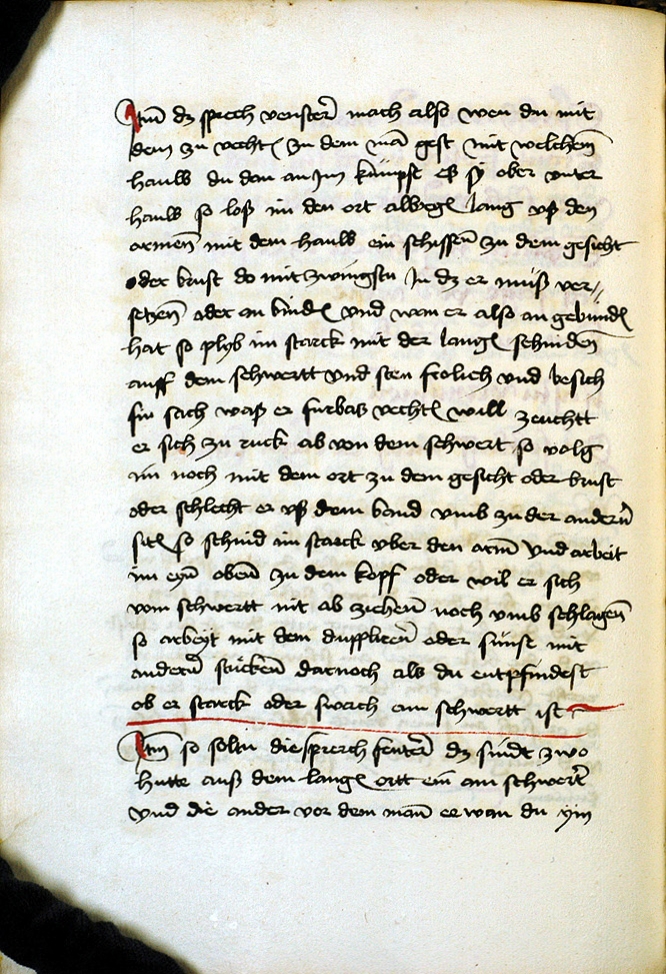 Itm̄ dz sprech venster̄ mach also wen du mit
dem zu vechtn̄ zu dem mā gest mit welchem̄
haüw du dan an Jm kümpst eß sÿ ober vnter
hauw so loß im den ort allbegn̄ lang vß den
armen̄ mit dem hauw ein schissen̄ zu dem gesicht
oder brust do mit zwingstu Jn dz er müß ver//
setzen̄ oder an bindn̄ vnd wan er also an gebundn̄
hat so plÿb im starck mit der langn̄ schniden̄
auff dem schwertt vnd sten frolich vnd besich
sin sach waß er furbas vechtn̄ will zeuchtt
er sich zu ruck ab von dem schwert so volg
im noch mit dem ort zu dem gesicht oder brust
oder schlecht er vß dem band vmb zu der andern̄
sitn̄ so schnid im starck vber den arm̄ vnd arbeit
im eyn̄ oben̄ zu dem kopf oder wil er sich
vom schwertt nit ab ziehen̄ noch vmb schlagen̄
so arbeÿt mit dem dupplieren̄ oder sünst mit
andern̄ stücken̄ darnoch als du entpfindest
ob er starck oder swach am schwertt ist
Itm̄ so soltu die sprech fenster̄ dz sindt zwo
hutte auß dem langn̄ ortt ein am schwert̄
vnd die ander vor dem man̄ ee wan du ym